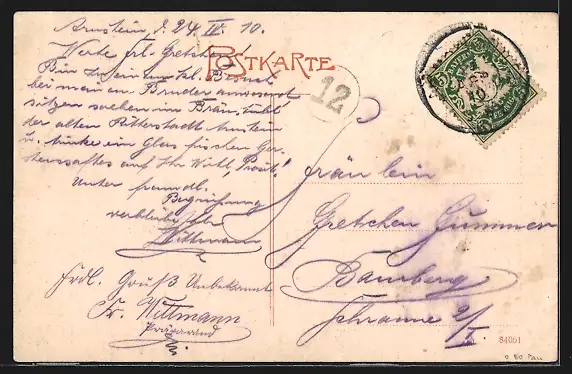 Arnstein d. 24. IV. 10.
Werte Frl. Gretchen!
POSTKARTE
Bin hier in zu Besuch
bei meinem Bruder anwesend
sitzen soeben im Bräustübl
der alten Ritterstadt Arnstein
u. trinke ein Glas frischen Ger-
stensaftes auf Ihr Wohl, Prosit!
Unter freundl.
Begrüßung
verbleibe Ihr
Wittmann
Frdl. Gruß Unbekannt
Fr. Wittmann
12
BAYERN
Fräulein
Gretchen Gummer
Bamberg
Schranne 9/I.
84051